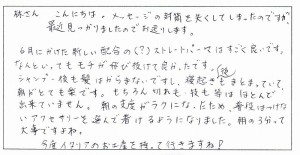 林さん こんにちは。メッセージの封筒を失くしてしまったのですが、
最近見つかりましたのでお送りします。
6月にかけた新しい配合の(?)ストレートパーマはすごく良いです。
なんといってもモチが飛び抜けて良かったです。
シャンプー後も髪はからまないですし、寝起き(後)もまとまっていて、
朝がとても楽です。もちろん切れ毛・枝毛等はほとんど
出来ていません。朝の支度がラクになったため、普段はつけない
アクセサリーを選んで着けるようになりました。朝の3分って
大事ですよね。
今度イタリアのお土産を持って行きますね!